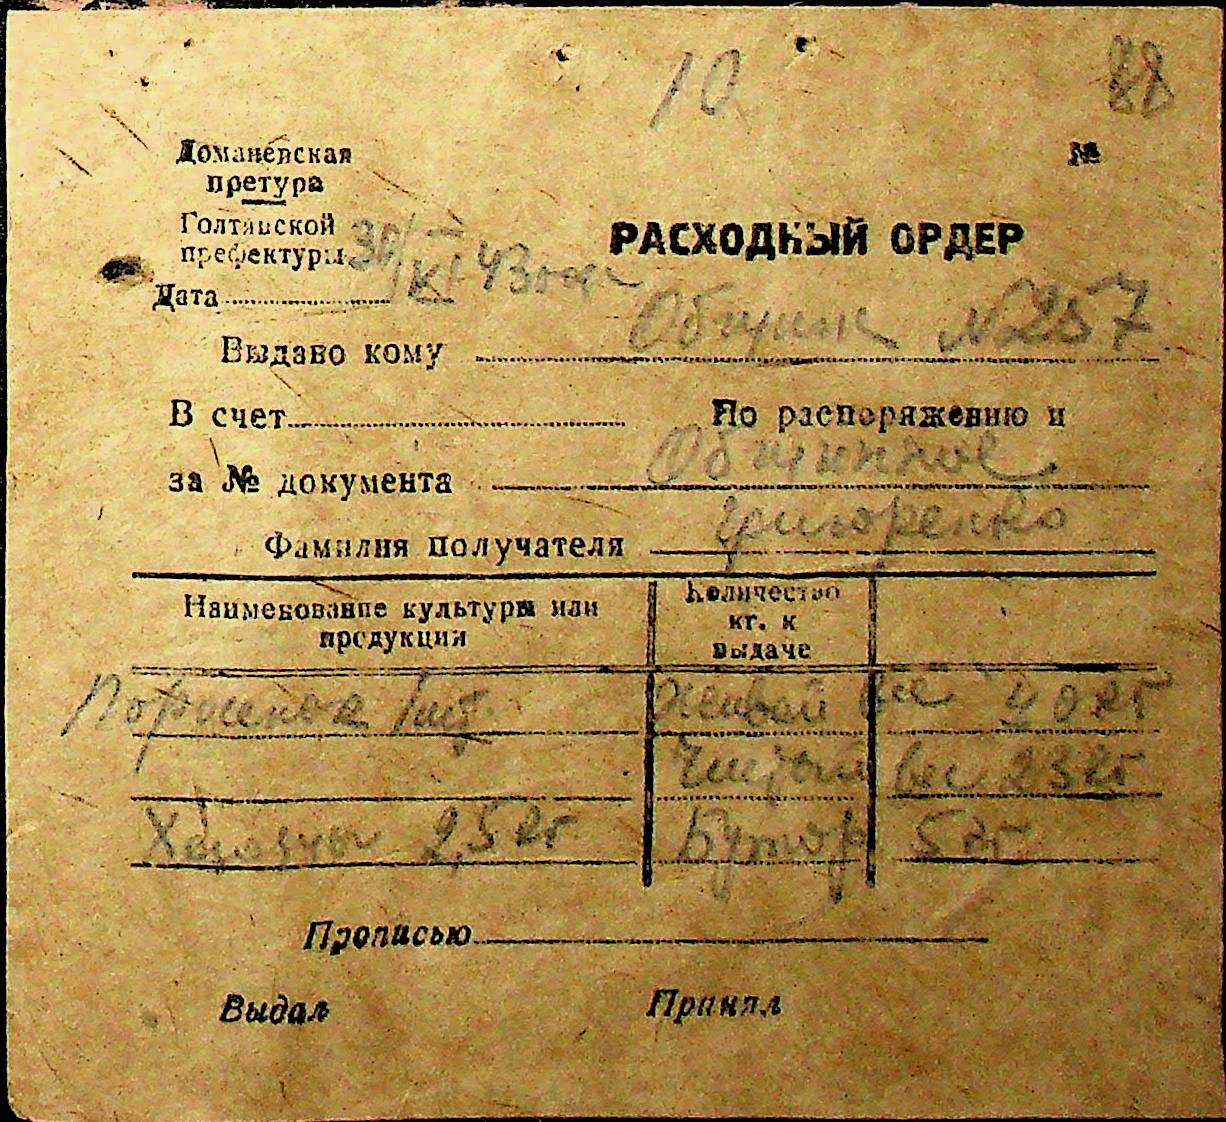 10 88
Доманевская
претура
№
Голтянской
префектуры
РАСХОДНЫЙ ОРДЕР
30/XI 43
Дата
Общине №257
Выдано кому
В счет По распоряжению и
за № документа
Фамилия получателя Григоренко
Наименование культуры или
продукции
Количество
кг. к
выдаче
1 шт. Живой вес 40 кг
Чистый вес 23 кг
2,5 кг 5 кг
Прописью
Выдал Принял